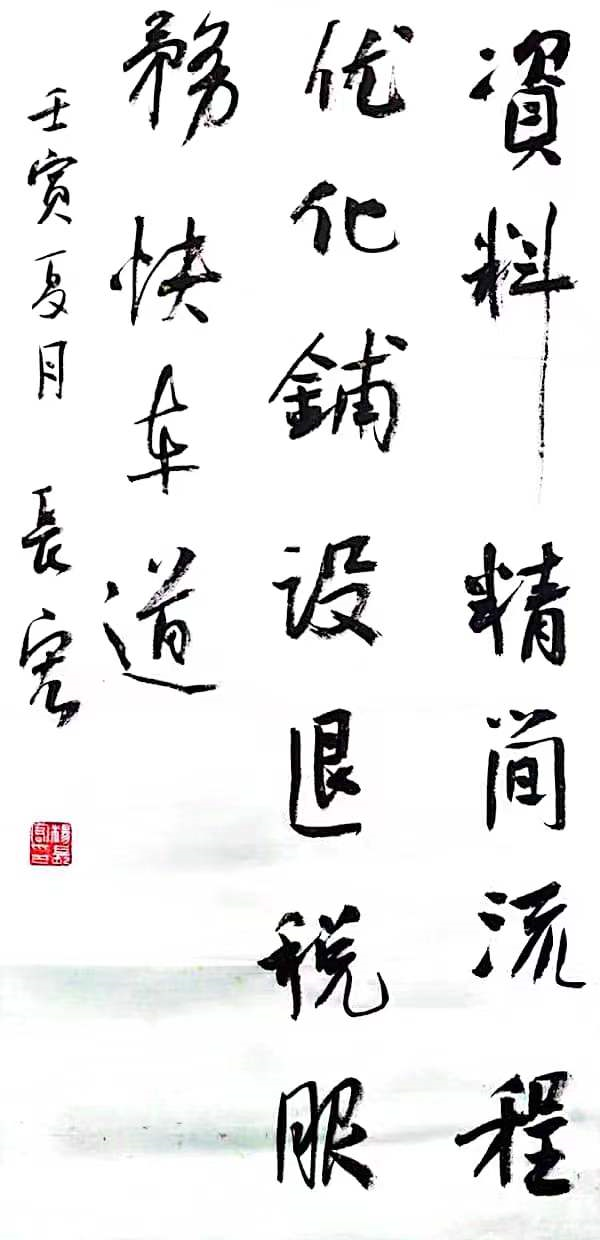 資料精简流程
优化鋪设退税服
務快车道
壬寅夏月 長宏